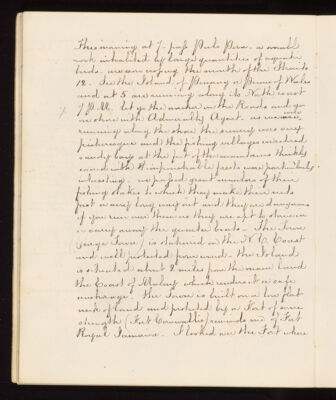 This morning at 7. pass Pulo Pera. a small
rock inhabited by large quantities of aquatic
birds. we are nearing the mouth of the Straits
12. See the Island of Penang or Prince of Wales
and at 5 are running along its North coast
7 P.M. let go the anchor in the Roads and go
on shore with Admiralty Agent. as we were
running along the shore the scenery was very
picturesque and the fishing villages in
sandy bays at the foot of the mountains thickly
covered with impenetrable forests were particularly
interesting. we passed great numbers of their
fishing stakes to which they make their nets
fast a very long way out and they are dangerous
if you run over them as they are apt to
or carry away the quarter boats. The Town
(George Town) is stationed on the N.E. Coast
and well protected from wind. the Island
is situated about 2 miles from the main land
the Coast of Malay which renders it a safe
anchorage. the Town is built on a low flat
neck of land and protected by a Fort of some
strength (Fort Cornwallis) reminds me of Fort
Royal Jamaica. I looked over the Fort where